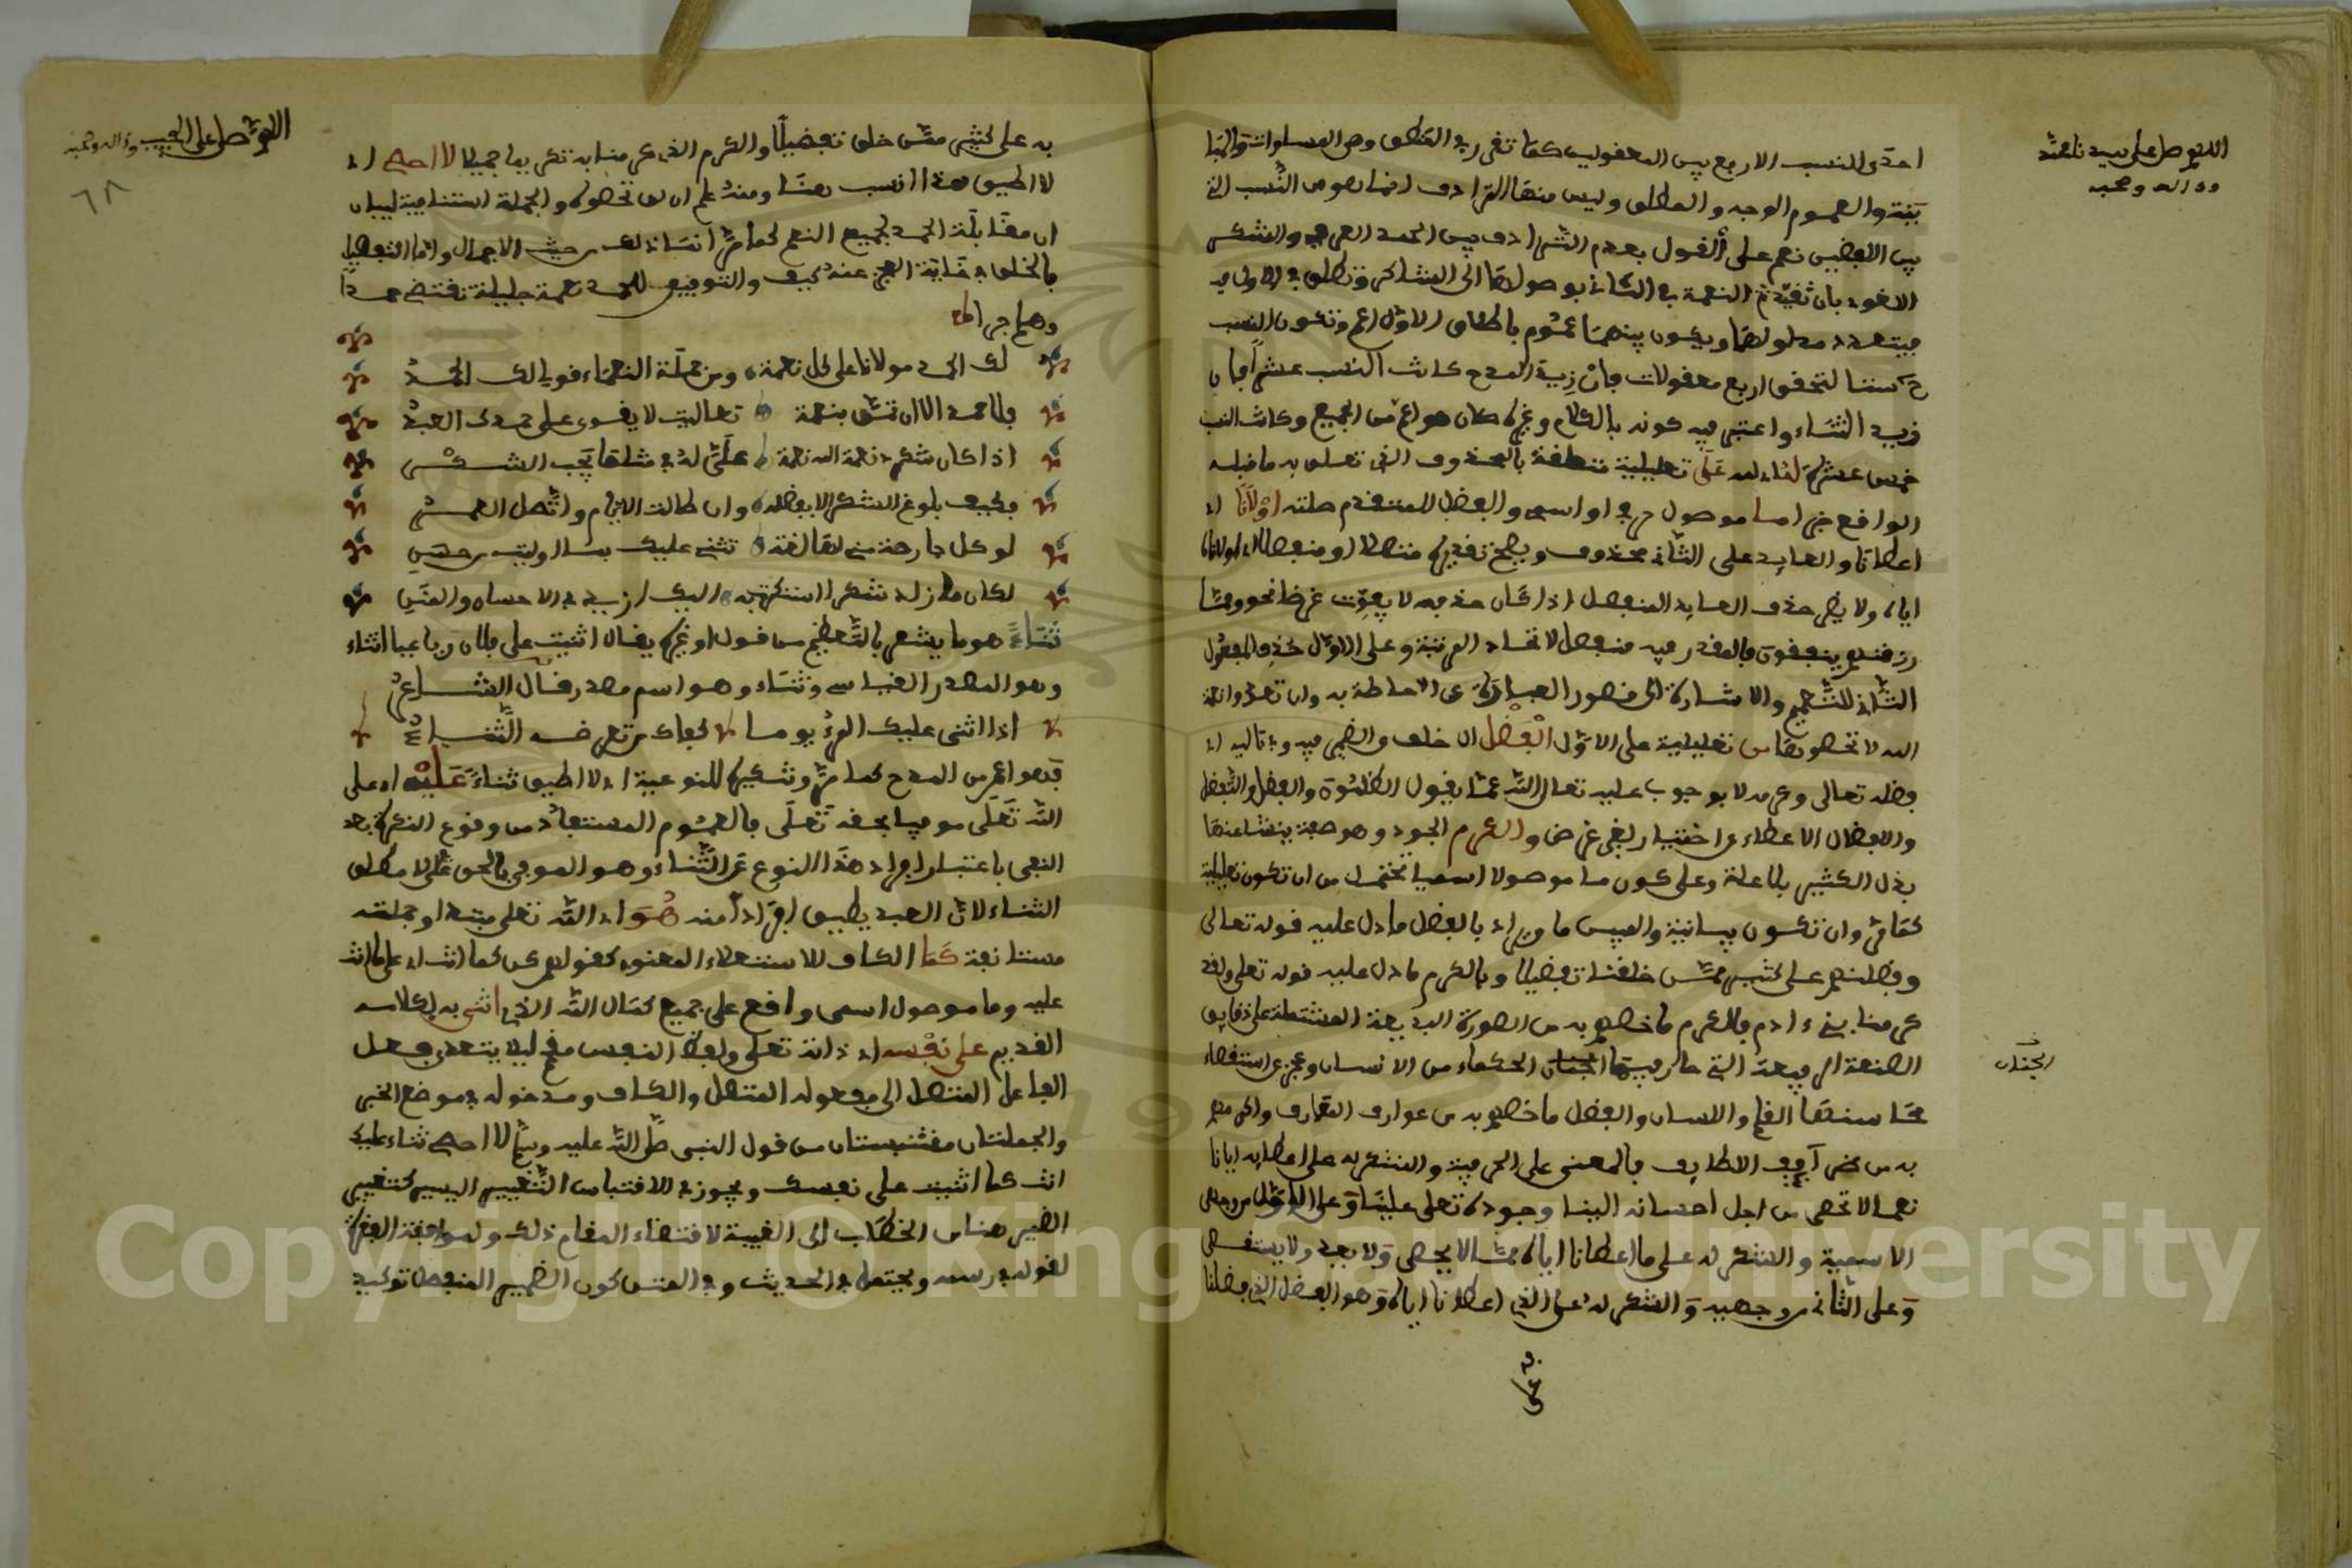 اللهم صل على سيدنا محمد
وءاله وصحبه
احدى النسب الاربع بين المعقولين كما تقرر في المنطق وهي التساوي والتباين
والعموم الوجه والمطلق وليس منها الترادف انما هو من النسب التي
بين اللفظين نعم على القول بعدم الترادف بين الحمد العرفي والشكر
اللغوي بان تقيد النعمة في الثاني بوصولها الى الشاكر وتطلق في الاول
فيتعدد مدلولهما ويكون بينهما عموم باطلاق الاول اعم وتكون النسب
ستا لتحقق اربع معقولات فان زيد المدح كانت النسب عشرا فان
زيد الثناء واعتبر فيه كونه بالكلام وغيره كان هو اعم من الجميع وكانت النسب
خمس عشرة على تعليلية متعلقة بالمحذوف الذي تعلق به ما قبله
الواقع خبرا ما موصول حرفي او اسمي والفضل للمتقدم صلته اولانا اي
اعطانا والعايد على الثاني محذوف ويصح تقديره متصلا او منفصلا
اياه ولا يضر حذف العايد المنفصل اذا كان حذفه لا يفوت غرضا نحو ومما
رزقنهم ينفقون فالمقدر فيه منفصل لاتحاد الرتبة وعلى الاول حذف المفعول
الثاني للتعميم والاشارة الى قصور العبارة عن الاحاطة به وان تعدوا نعمة
الله لا تحصوها من تعليلية على الاول الفضل ال خلف والضمير فيه وفي تاليه اي
فضله تعالى وكرمه لا بوجوب عليه تعالى الله عما يقول الظلمة والفضل والتفضل
والافضال الاعطاء عن اختيار لغير غرض والكرم الجود وهو صفة ينشا عنها
بذل الكثير بلا علة وعلى كون ما موصولا اسميا تحتمل من ان تكون تعليلية
كما مر وان تكون بيانية والمبين ما ويراد بالفضل ما دل عليه قوله تعالى
وفضلنهم على كثير ممن خلقنا تفضيلا وبالكرم ما دل عليه قوله تعلى ولقد
كرمنا بني ءادم فالكرم ما خصهم به من الصورة البديعة المشتملة على دقايق
الصنعة الرفيعة التي حار فيها الحكماء من الانسان وعجز عن استقصاء
الجنان
محاسنها القلم واللسان والفضل ما خصهم به من عوارف المعارف واكرمهم
به من اللطايف فالمعنى على الحرفية والشكر له على اعطايه ايانا
نعما لا تحصى من اجل احسانه الينا وجوده تعلى علينا وعلى الاول من وجهي
الاسمية والشكر له على ما اعطانا اياه مما لا يحصى ولا يعد ولا يستقصى
وعلى الثاني من وجهيه والشكر له على الذي اعطانا اياه وهو الفضل الذي فضلنا
به على
اللهم صل على الحبيب وءاله وصحبه
٦٨
به على كثير ممن خلق تفضيلا والكرم الذي كرمنا به تكريما جميلا لا احصي اي
لا اطيق هذا انسب هنا ومنه علم ان لن تحصوه والجملة استينافية لبيان
ان مقابلة الحمد لجميع النعم كما مر انما ذلك من حيث الاجمال واما التفصيل
فالخلق في غاية العجز عنه كيف والتوفيق للحمد نعمة جليلة تقتضي حمدا
وهلم جرا
لك الحمد مولانا على كل نعمة ومن جملة النعماء قولي لك الحمد
فلا حمد الا ان تمن بنعمة تعاليت لا يقوى على حمدك العبد
اذا كان شكري نعمة الله نعمة علي له في مثلها يجب الشكر
فكيف بلوغ الشكر الا بفضله وان طالت الايام واتصل العمر
لو كل جارحة مني لها لغة تثني عليك بما اوليت من حسن
لكان ما زاد شكري اذ شكرت به اليك ازيد في الاحسان والمنن
ثناء هو ما يشعر بالتعظيم من قول او غيره يقال اثنيت على فلان رباعيا اثناء
وهو المصدر القياسي وثناء وهو اسم مصدر قال الشاعر
اذا اثنى عليك المرء يوما كفاك من تعرضه الثناء
فهو اعم من المدح كما مر وتنكيره للنوعية اي لا اطيق ثناء عليه اي على
الله تعلى موفيا بحقه تعلى فالعموم المستفاد من وقوع النكرة بعد
النفي باعتبار افراد هذا النوع من الثناء وهو الموفي بالحق تعلى لا مطلق
الثناء لان العبد يطيق افرادا منه هو اي الله تعلى مبتدا وجملته
مستانفة كما الكاف للاستعلاء المعنوي كقولهم كن كما انت اي على ما انت
عليه وما موصول اسمي واقع على جميع كمال الله الذي اثنى به بكلامه
القديم على نفسه اي ذاته تعلى ولفظ النفس مقحم ليلا يتعدى فعل
الفاعل المتصل الى مفعوله المتصل والكاف ومدخوله في موضع الخبر
والجملتان مقتبستان من قول النبي صلى الله عليه وسلم لا احصي ثناء عليك
انت كما اثنيت على نفسك ويجوز في الاقتباس التغيير اليسير كتغيير
الضمير هنا من الخطاب الى الغيبة لاقتضاء المقام ذلك ولموافقة الفقرة
لقوله ويحتمل في الحديث وفي المتن كون الضمير المنفصل توكيد
Copyright © King Saud University